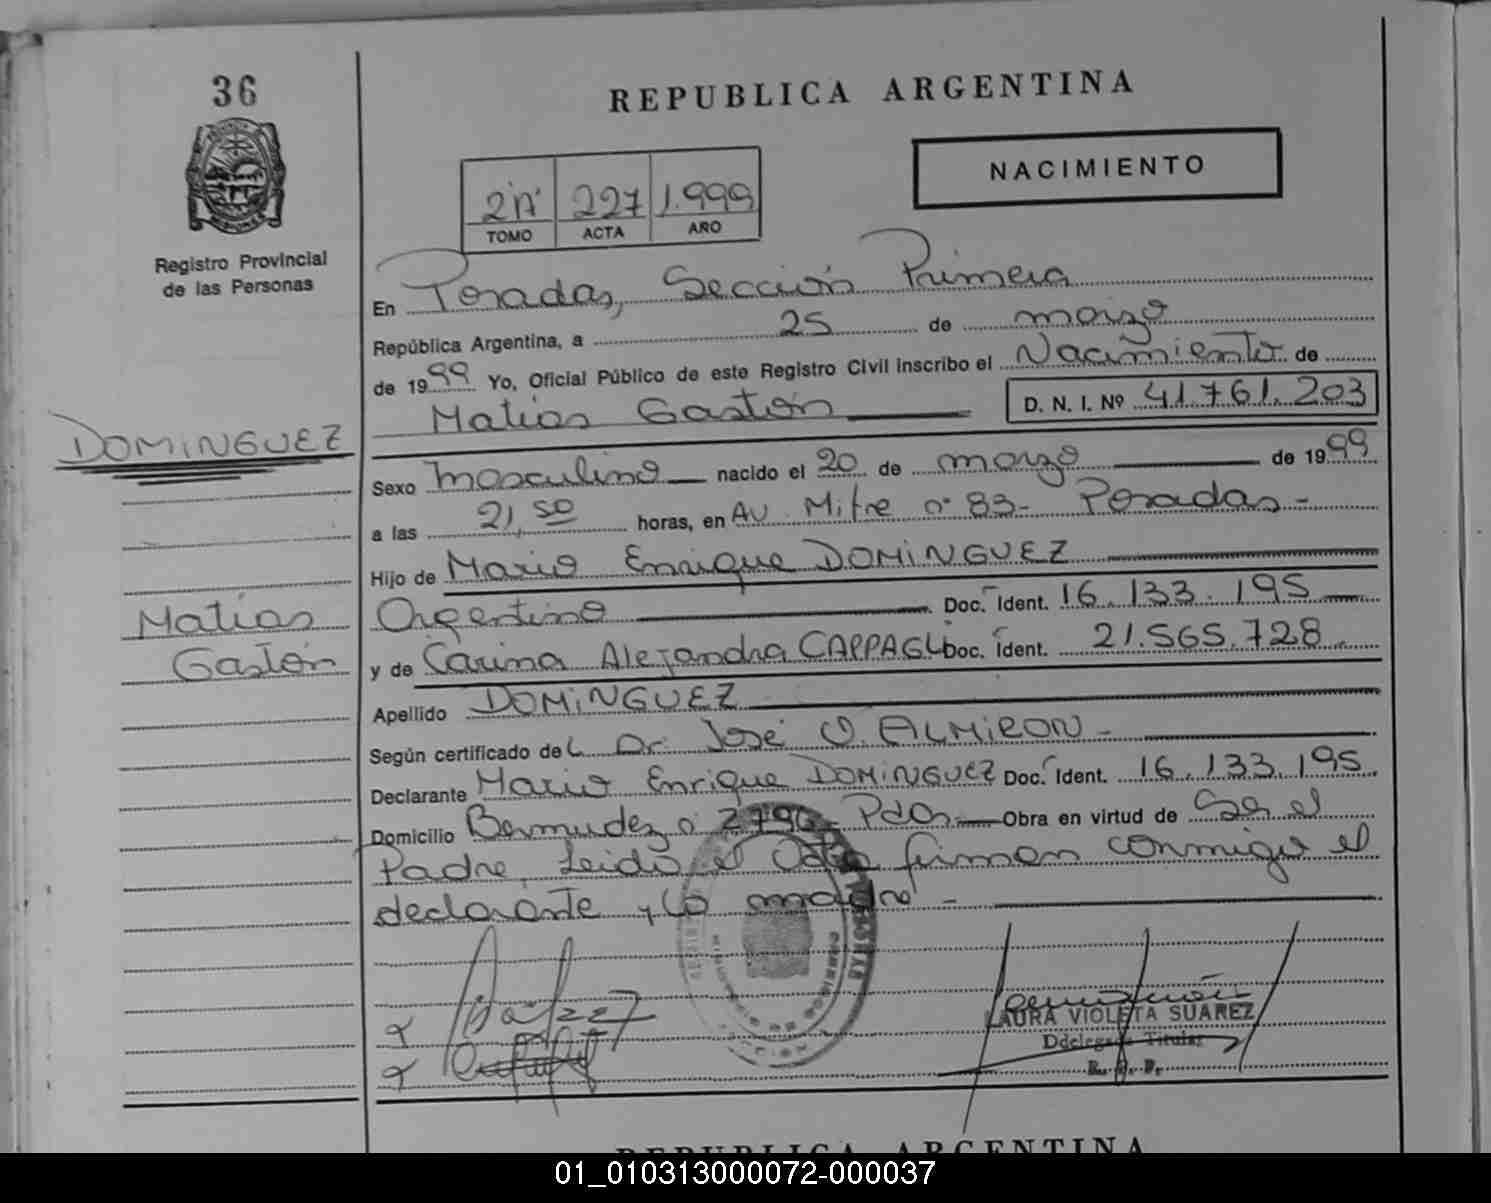 36
REPUBLICA ARGENTINA
NACIMIENTO
2ºA 227 1.999
TOMO ACTA AÑO
Registro Provincial
de las Personas
En Posadas, Sección Primera
República Argentina, a 25 de marzo
de 1999 Yo, Oficial Público de este Registro Civil inscribo el Nacimiento de
Matias Gastón D. N. I. Nº 41.761.203
DOMINGUEZ
Sexo masculino nacido el 20 de marzo de 1999
a las 21,50 horas, en Av. Mitre nº 83- Posadas-
Hijo de Mario Enrique DOMINGUEZ
Matias
Argentino Doc. Ident. 16.133.195
Gastón
y de Carina Alejandra CAPPAGLI Doc. Ident. 21.565.728
Apellido DOMINGUEZ
Según certificado del Dr. José O. ALMIRON-
Declarante Mario Enrique DOMINGUEZ Doc. Ident. 16.133.195
Domicilio Bermudez nº Pdas- Obra en virtud de Ser el
Padre, Leido el Acta firman conmigo el
declarante y la madre-
LAURA VIOLETA SUAREZ
Ddelegada Titular
R. P. P.
REPUBLICA ARGENTINA
01_010313000072-000037